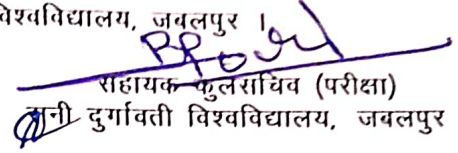 विश्वविद्यालय, जबलपुर ।
सहायक कुलसचिव (परीक्षा)
रानी दुर्गावती विश्वविद्यालय, जबलपुर